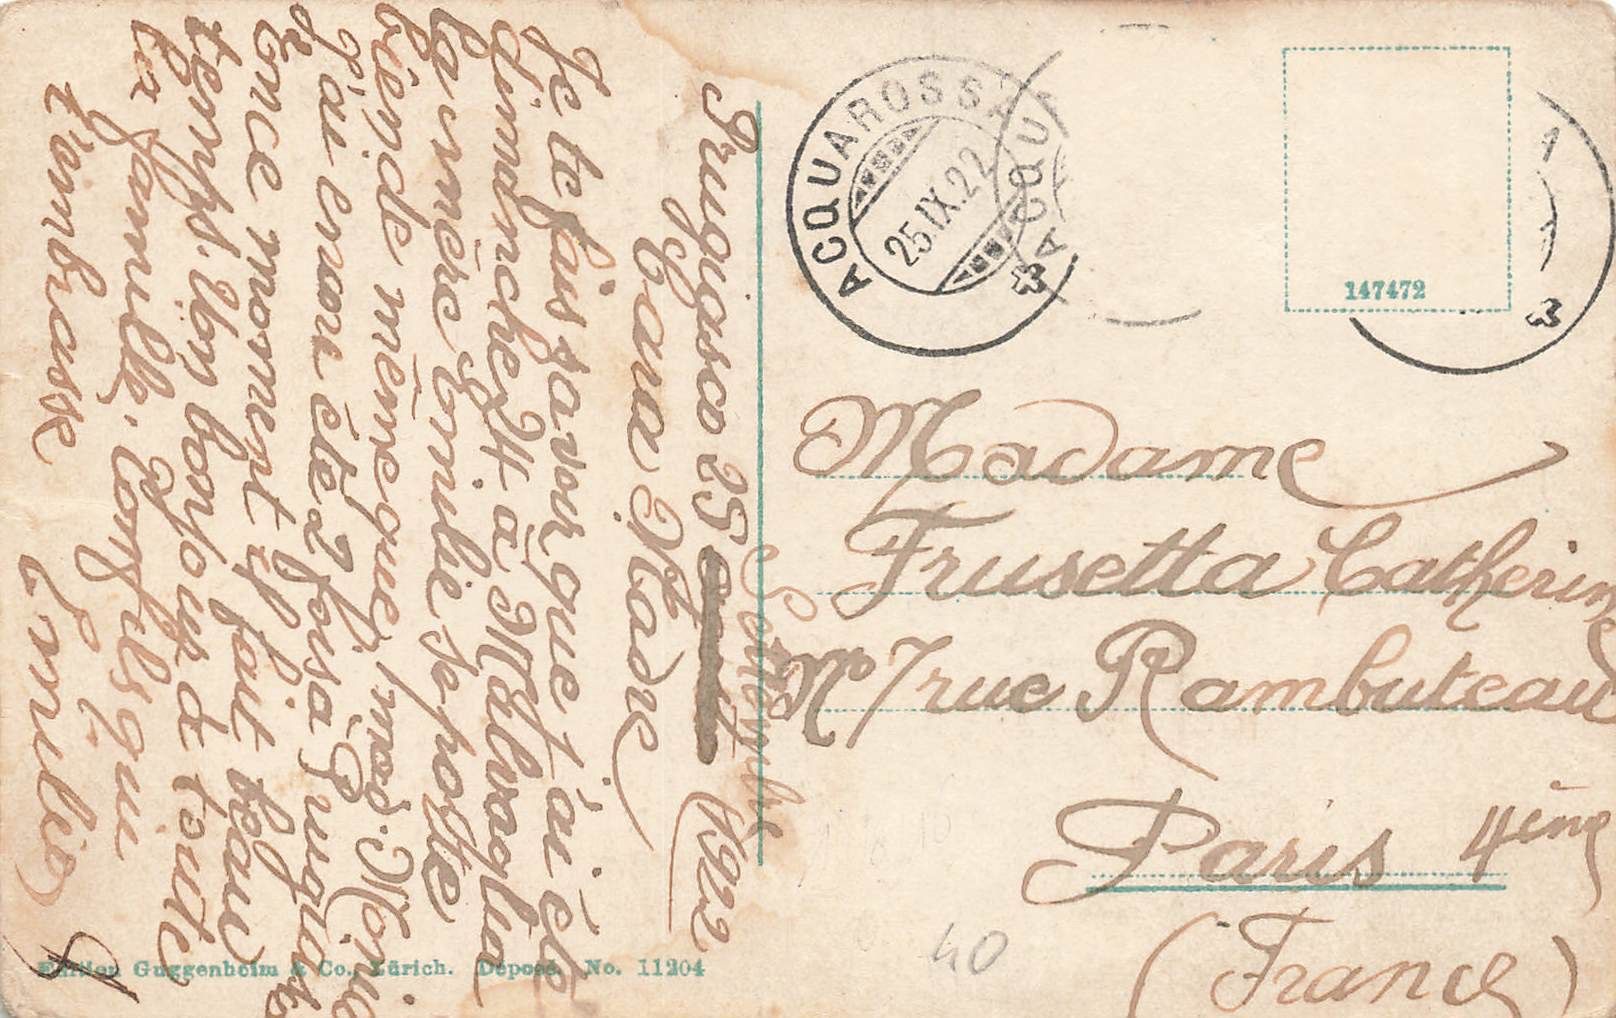 Prugiasco 25 Septembre 1922
Cara Madre
Je te fais savoir que j'ai été
dimanche 24 à Malvaglia
la mère Emilie se porte
bien de même que
J'ai encor été 2 fois a
ence moment il fait beau
temps. Un bonjour à toute
la famille, ton fils qui
t'ambrasse Emilio
ACQUAROSSA
25.IX.22
ACQU
147472
Madame
Frusetta Catherine
No 7 rue Rambuteau
Paris 4ème
(France)
40
Edition Guggenheim & Co., Zürich. Déposé. No. 11204